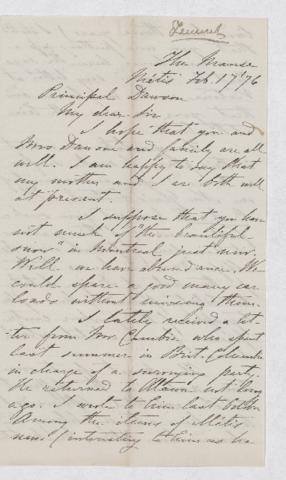 The Manse
Metis Feb 17th 76
Principal Dawson
My dear Sir
I hope that you and
Mrs Dawson and family are all
well. I am happy to say that
my mother and I are both well
at present.
I suppose that you have
not much of "the beautiful
snow" in Montreal just now.
Well, we have abundance. We
could spare a good many car
loads without missing them.
I lately received a let-
ter from Mr Cambie who spent
last summer in Brit. Columbia
in charge of a surveying party.
He returned to Ottawa not long
ago. I wrote to him last
Among the items of Metis
news (interesting to him as he